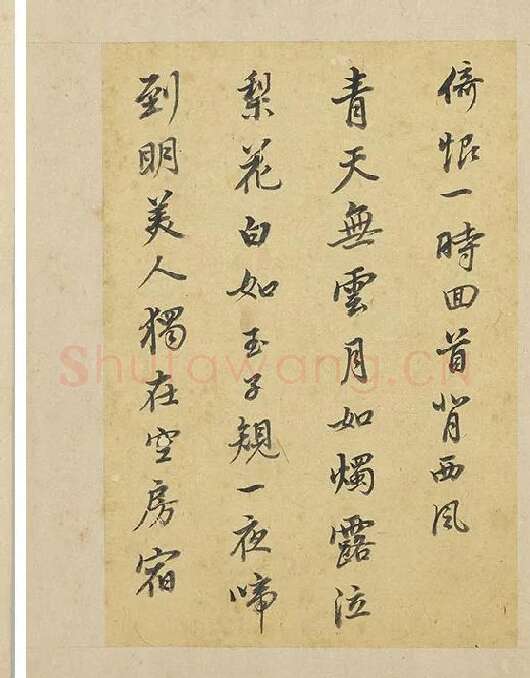 倚恨一時回首背西風
青天無雲月如燭露泣
梨花白如玉子規一夜啼
到明美人獨在空房宿
Shufawang.CN